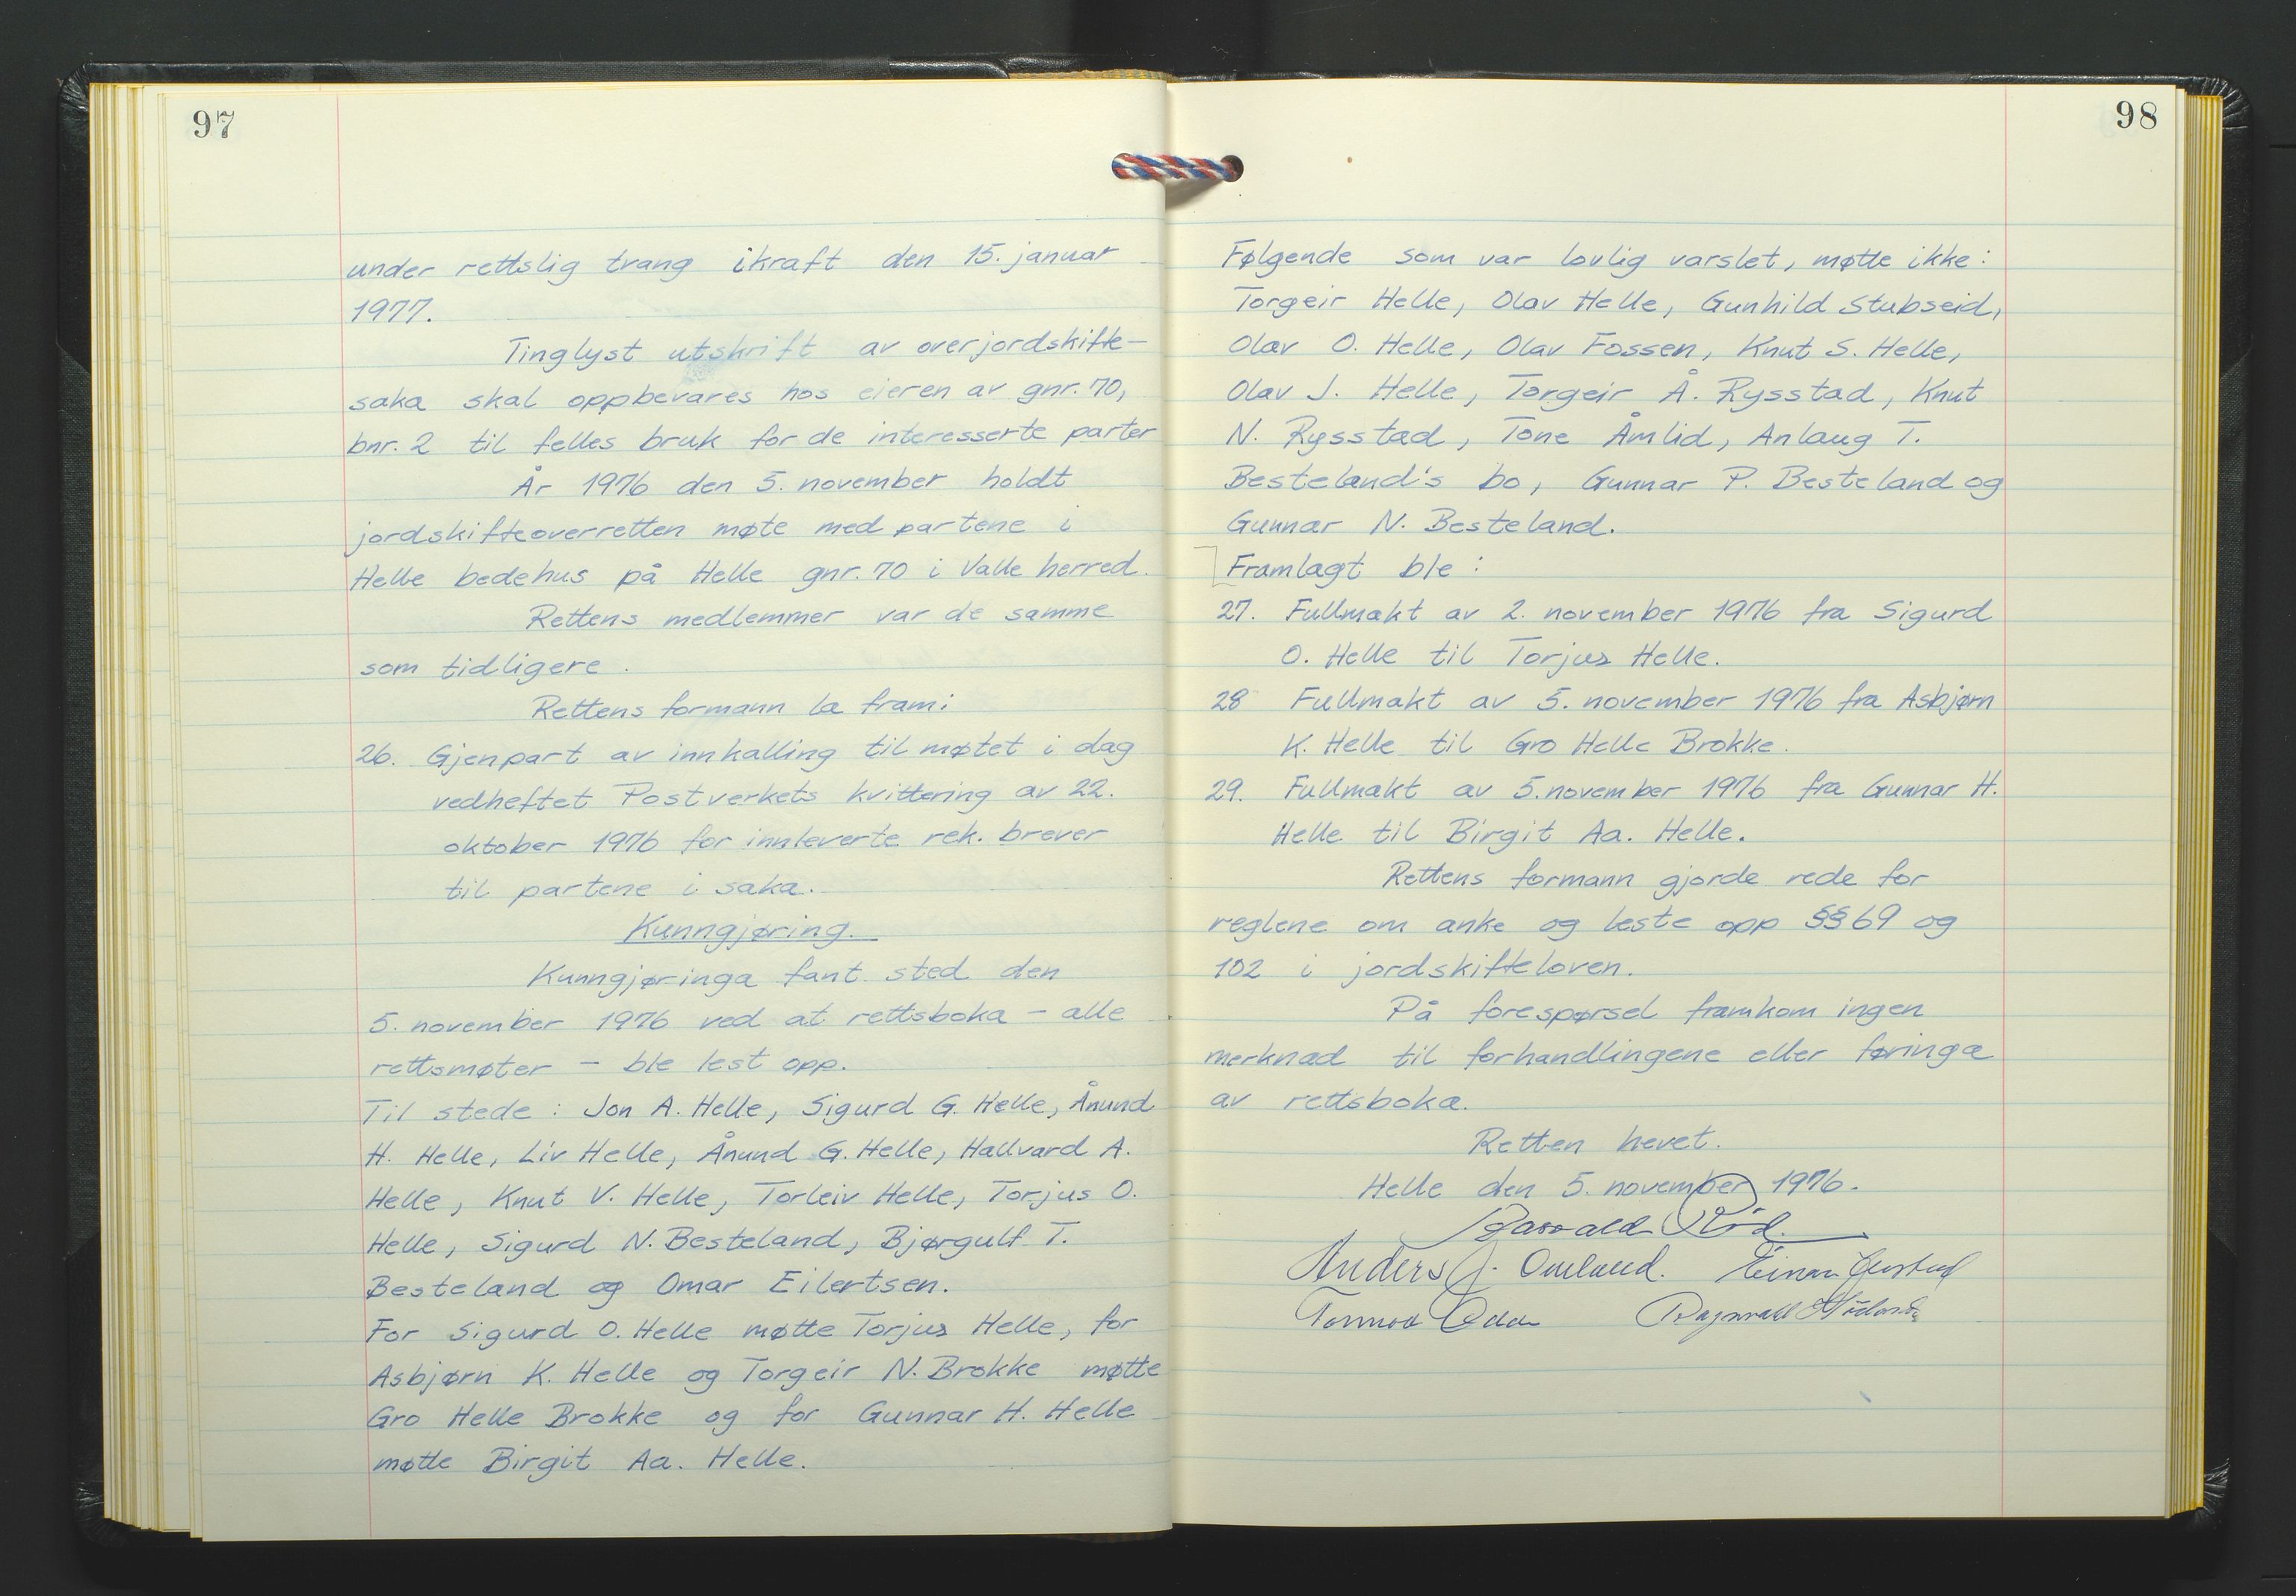 97
under rettslig tvang ikraft den 15. januar
1977.
Tinglyst utskrift av overjordskifte-
saka skal oppbevares hos eieren av gnr. 70,
bnr. 2 til felles bruk for de interesserte parter
År 1976 den 5. november holdt
jordskifteoverretten møte med partene i
Helle bedehus på Helle gnr. 70 i Valle herred.
Rettens medlemmer var de samme
som tidligere.
Rettens formann la fram:
26. Gjenpart av innkalling til møtet i dag
vedheftet Postverkets kvittering av 22.
oktober 1976 for innleverte rek. brever
til partene i saka.
Kunngjøring.
Kunngjøringa fant sted den
5. november 1976 ved at rettsboka - alle
rettsmøter - ble lest opp.
Til stede : Jon A. Helle, Sigurd G. Helle, Ånund
H. Helle, Liv Helle, Ånund G. Helle, Hallvard A.
Helle, Knut V. Helle, Torleiv Helle, Torjus O.
Helle, Sigurd N. Besteland, Bjørgulf T.
Besteland og Omar Eilertsen.
For Sigurd O. Helle møtte Torjus Helle, for
Asbjørn K. Helle og Torgeir N. Brokke møtte
Gro Helle Brokke og for Gunnar H. Helle
møtte Birgit Aa. Helle.
98
Følgende som var lovlig varslet, møtte ikke:
Torgeir Helle, Olav Helle, Gunhild Stubseid,
Olav O. Helle, Olav Fossen, Knut S. Helle,
Olav J. Helle, Torgeir Å. Rysstad, Knut
N. Rysstad, Tone Åmlid, Anlaug T.
Besteland's bo, Gunnar P. Besteland og
Gunnar N. Besteland.
Framlagt ble:
27. Fullmakt av 2. november 1976 fra Sigurd
O. Helle til Torjus Helle.
28 Fullmakt av 5. november 1976 fra Asbjørn
K. Helle til Gro Helle Brokke.
29. Fullmakt av 5. november 1976 fra Gunnar H.
Helle til Birgit Aa. Helle.
Rettens formann gjorde rede for
reglene om anke og leste opp §§ 69 og
102 i jordskifteloven.
På forespørsel framkom ingen
merknad til forhandlingene eller føringa
av rettsboka.
Retten hevet.
Helle den 5. november 1976.
Anders J. Omland. Einar
Tormod